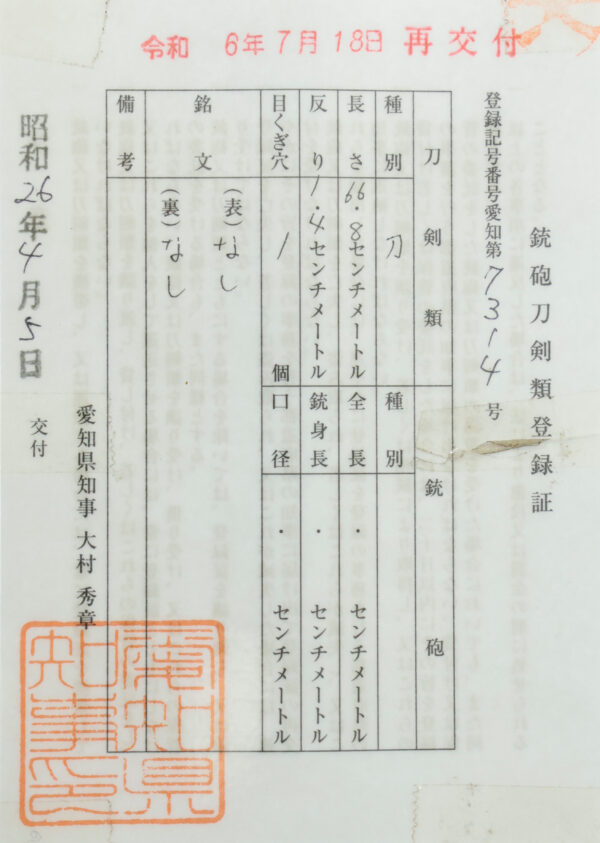 令和 6年7月18日 再交付
銃砲刀剣類登録証
登録記号番号愛知第7314号
刀剣類
種別 刀
長さ 66・8センチメートル
反り 1・4センチメートル
目くぎ穴 1個
銘文 (表)なし
(裏)なし
備考
銃砲
種別
全長 ・ センチメートル
銃身長 ・ センチメートル
口径 ・ センチメートル
昭和26年4月5日 交付
愛知県知事 大村 秀章
愛知県知事印